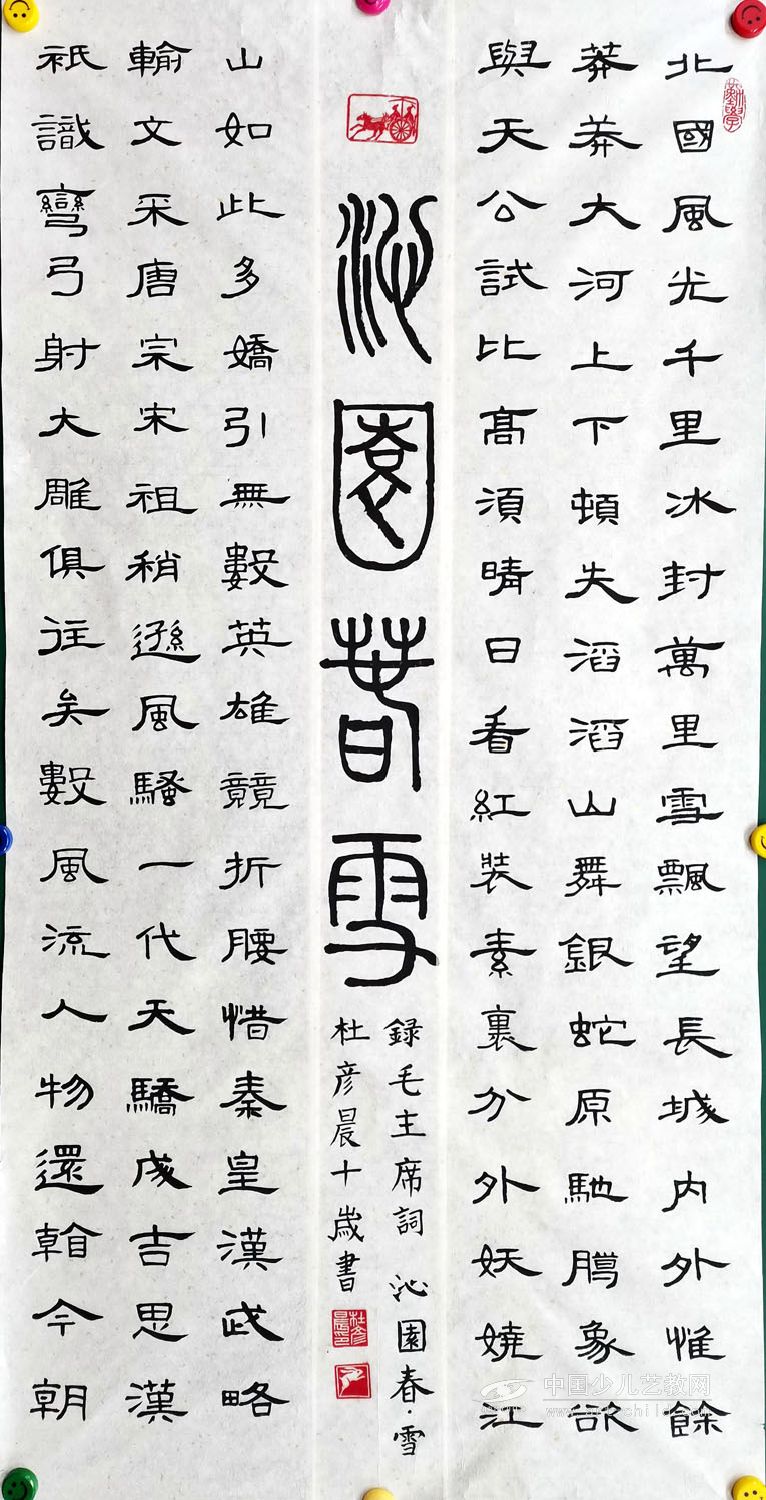 勤學
北國風光千里冰封萬里雪飄望長城内外惟餘
莽莽大河上下頓失滔滔山舞銀蛇原馳象欲
與天公試比高須晴日看紅裝素裹分外妖嬈江
沁園春雪
錄毛主席詞 沁園春·雪
杜彦晨十歲書
杜彦晨印
山如此多嬌引無數英雄競折腰惜秦皇漢武略
輸文采唐宗宋祖稍遜風騷一代天驕成吉思漢
祇識彎弓射大雕俱往矣數風流人物還今朝
中国少儿艺教网